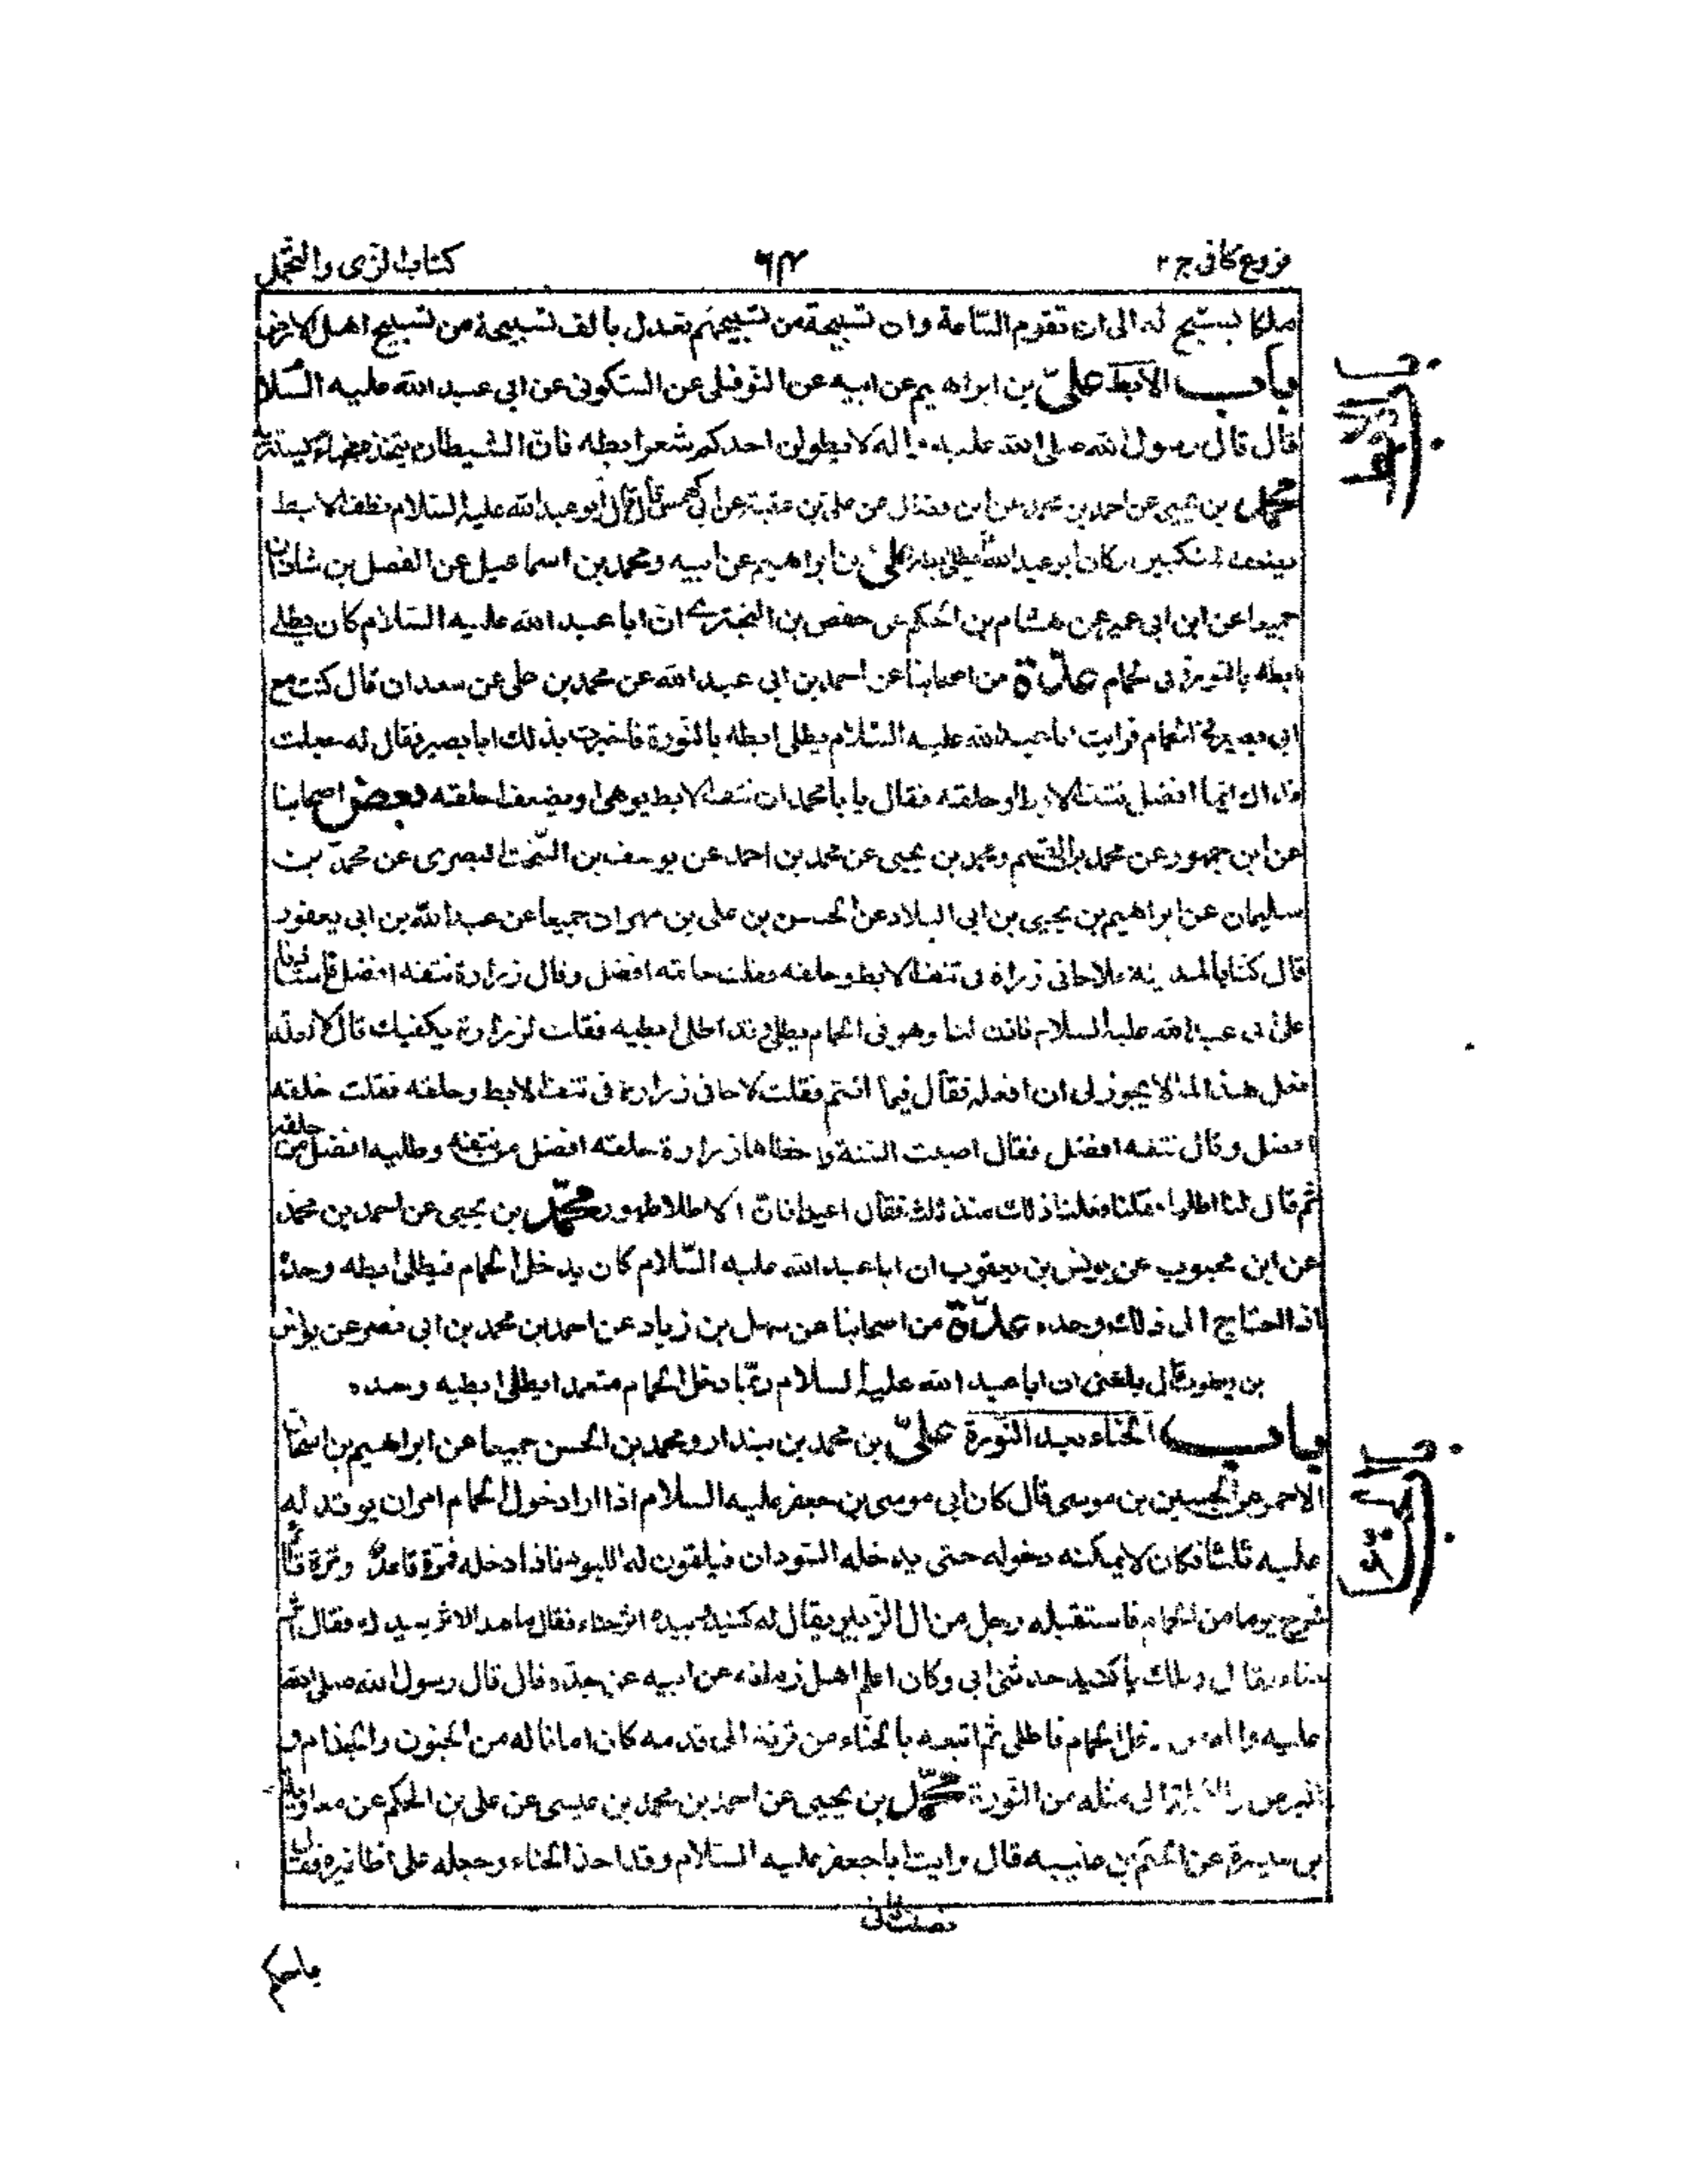 فروع كافى ج ٢
كتاب الزى والتجمل
ملكا يسبح له الى ان تقوم الساعة وان تسبيحة من تسبيحهم تعدل بالف تسبيحة من تسبيح اهل الارض
باب الابط علىّ بن ابراهيم عن ابيه عن النوفلى عن السكونى عن ابى عبد الله عليه السّلا
قال قال رسول الله صلى الله عليه واله لا يطولن احدكم شعر ابطه فانّ الشيطان يتخذه
محمّد بن يحيى عن احمد بن عن ابن فضال عن على بن عقبة عن ابى كهمس قال قال ابو عبد الله عليه السّلام نتف الابط
وكان ابو عبد الله يطلى علىّ بن ابراهيم عن ابيه ومحمد بن اسماعيل عن الفضل بن شاذان
جميعا عن ابن ابى عمير عن هشام بن الحكم عن حفص بن البخترى ان ابا عبد الله عليه السّلام كان يطلى
ابطه بالنورة فى الحمام عدّة من اصحابنا عن احمد بن ابى عبد الله عن محمد بن على عن سعدان قال كنت مع
ابى بصير فى الحمام فرايت ابا عبد الله عليه السّلام يطلى ابطه بالنّورة فاخبرت بذلك ابا بصير فقال له جعلت
فداك ايّما افضل نتف الابط او حلقه فقال يا با محمد ان نتف الابط يوهى او يضعف احلقه بعض اصحابنا
عن ابن جمهور عن محمد بن القسم ومحمد بن يحيى عن محمد بن احمد عن يوسف بن السّخت البصرى عن محمد بن
سليمان عن ابراهيم بن يحيى بن ابى البلاد عن الحسن بن على بن مهران جميعا عن عبد الله بن ابى يعفور
قال كنا بالمدينة فلاحانى زرارة فى نتف الابط وحلقه فقلت حلقه افضل وقال زرارة نتفه افضل فاستاذنا
على ابى عبد الله عليه السلام فاذن لنا وهو فى الحمام يطلى وقد اطلى ابطيه فقلت لزرارة يكفيك قال لا لعله
فعل هذا لما لا يجوز لى ان افعله فقال فيما انتم فقلت لاحانى زرارة فى نتف الابط وحلقه فقلت حلقه
افضل وقال نتفه افضل فقال اصبت السّنة واخطاها زرارة حلقه افضل من نتفه وطليه افضل من حلقه
ثم قال لنا اطليا فقلنا فعلنا ذلك منذ ثلث فقال اعيدا فانّ الاطلا طهور محمّد بن يحيى عن احمد بن محمّد
عن ابن محبوب عن يونس بن يعقوب ان ابا عبد الله عليه السّلام كان يدخل الحمام فيطلى ابطه وحده
اذا احتاج الى ذلك وحده عدّة من اصحابنا عن سهل بن زياد عن احمد بن محمد بن ابى نصر عن يونس
بن يعقوب قال بلغنى ان ابا عبد الله عليه السلام ربّما دخل الحمام متعمدا يطلى ابطيه وحده
باب الحنّاء بعد النّورة علىّ بن محمد بن بندار ومحمد بن الحسن جميعا عن ابراهيم بن اسحاق
الاحمر عن الحسين بن موسى قال كان ابى موسى بن جعفر عليه السلام اذا اراد دخول الحمام امر ان يوقد له
عليه ثلثا فكان لا يمكنه دخوله حتى يدخله السّودان فيلقون له اللبود فاذا دخله فمرّة قاعد ومرّة قائم
فخرج يوما من الحمام فاستقبله رجل من ال الزّبير يقال له كنيد وبيده اثر حناء فقال ما هذا الاثر بيدك فقال اثر
حناء فقال ويلك يا كنيد حدثنى ابى وكان اعلم اهل زمانه عن ابيه عن جدّه قال قال رسول الله صلى الله
عليه واله من دخل الحمام فاطلى ثم اتبعه بالحنّاء من قرنه الى قدمه كان امانا له من الجنون والجذام و
البرص والاكلة الى مثله من النّورة محمّد بن يحيى عن احمد بن محمد بن عيسى عن على بن الحكم عن معاوية
بن ميسرة عن الحكم بن عتيبه قال رايت ابا جعفر عليه السّلام وقد اخذ الحناء وجعله على اظافيره فقال